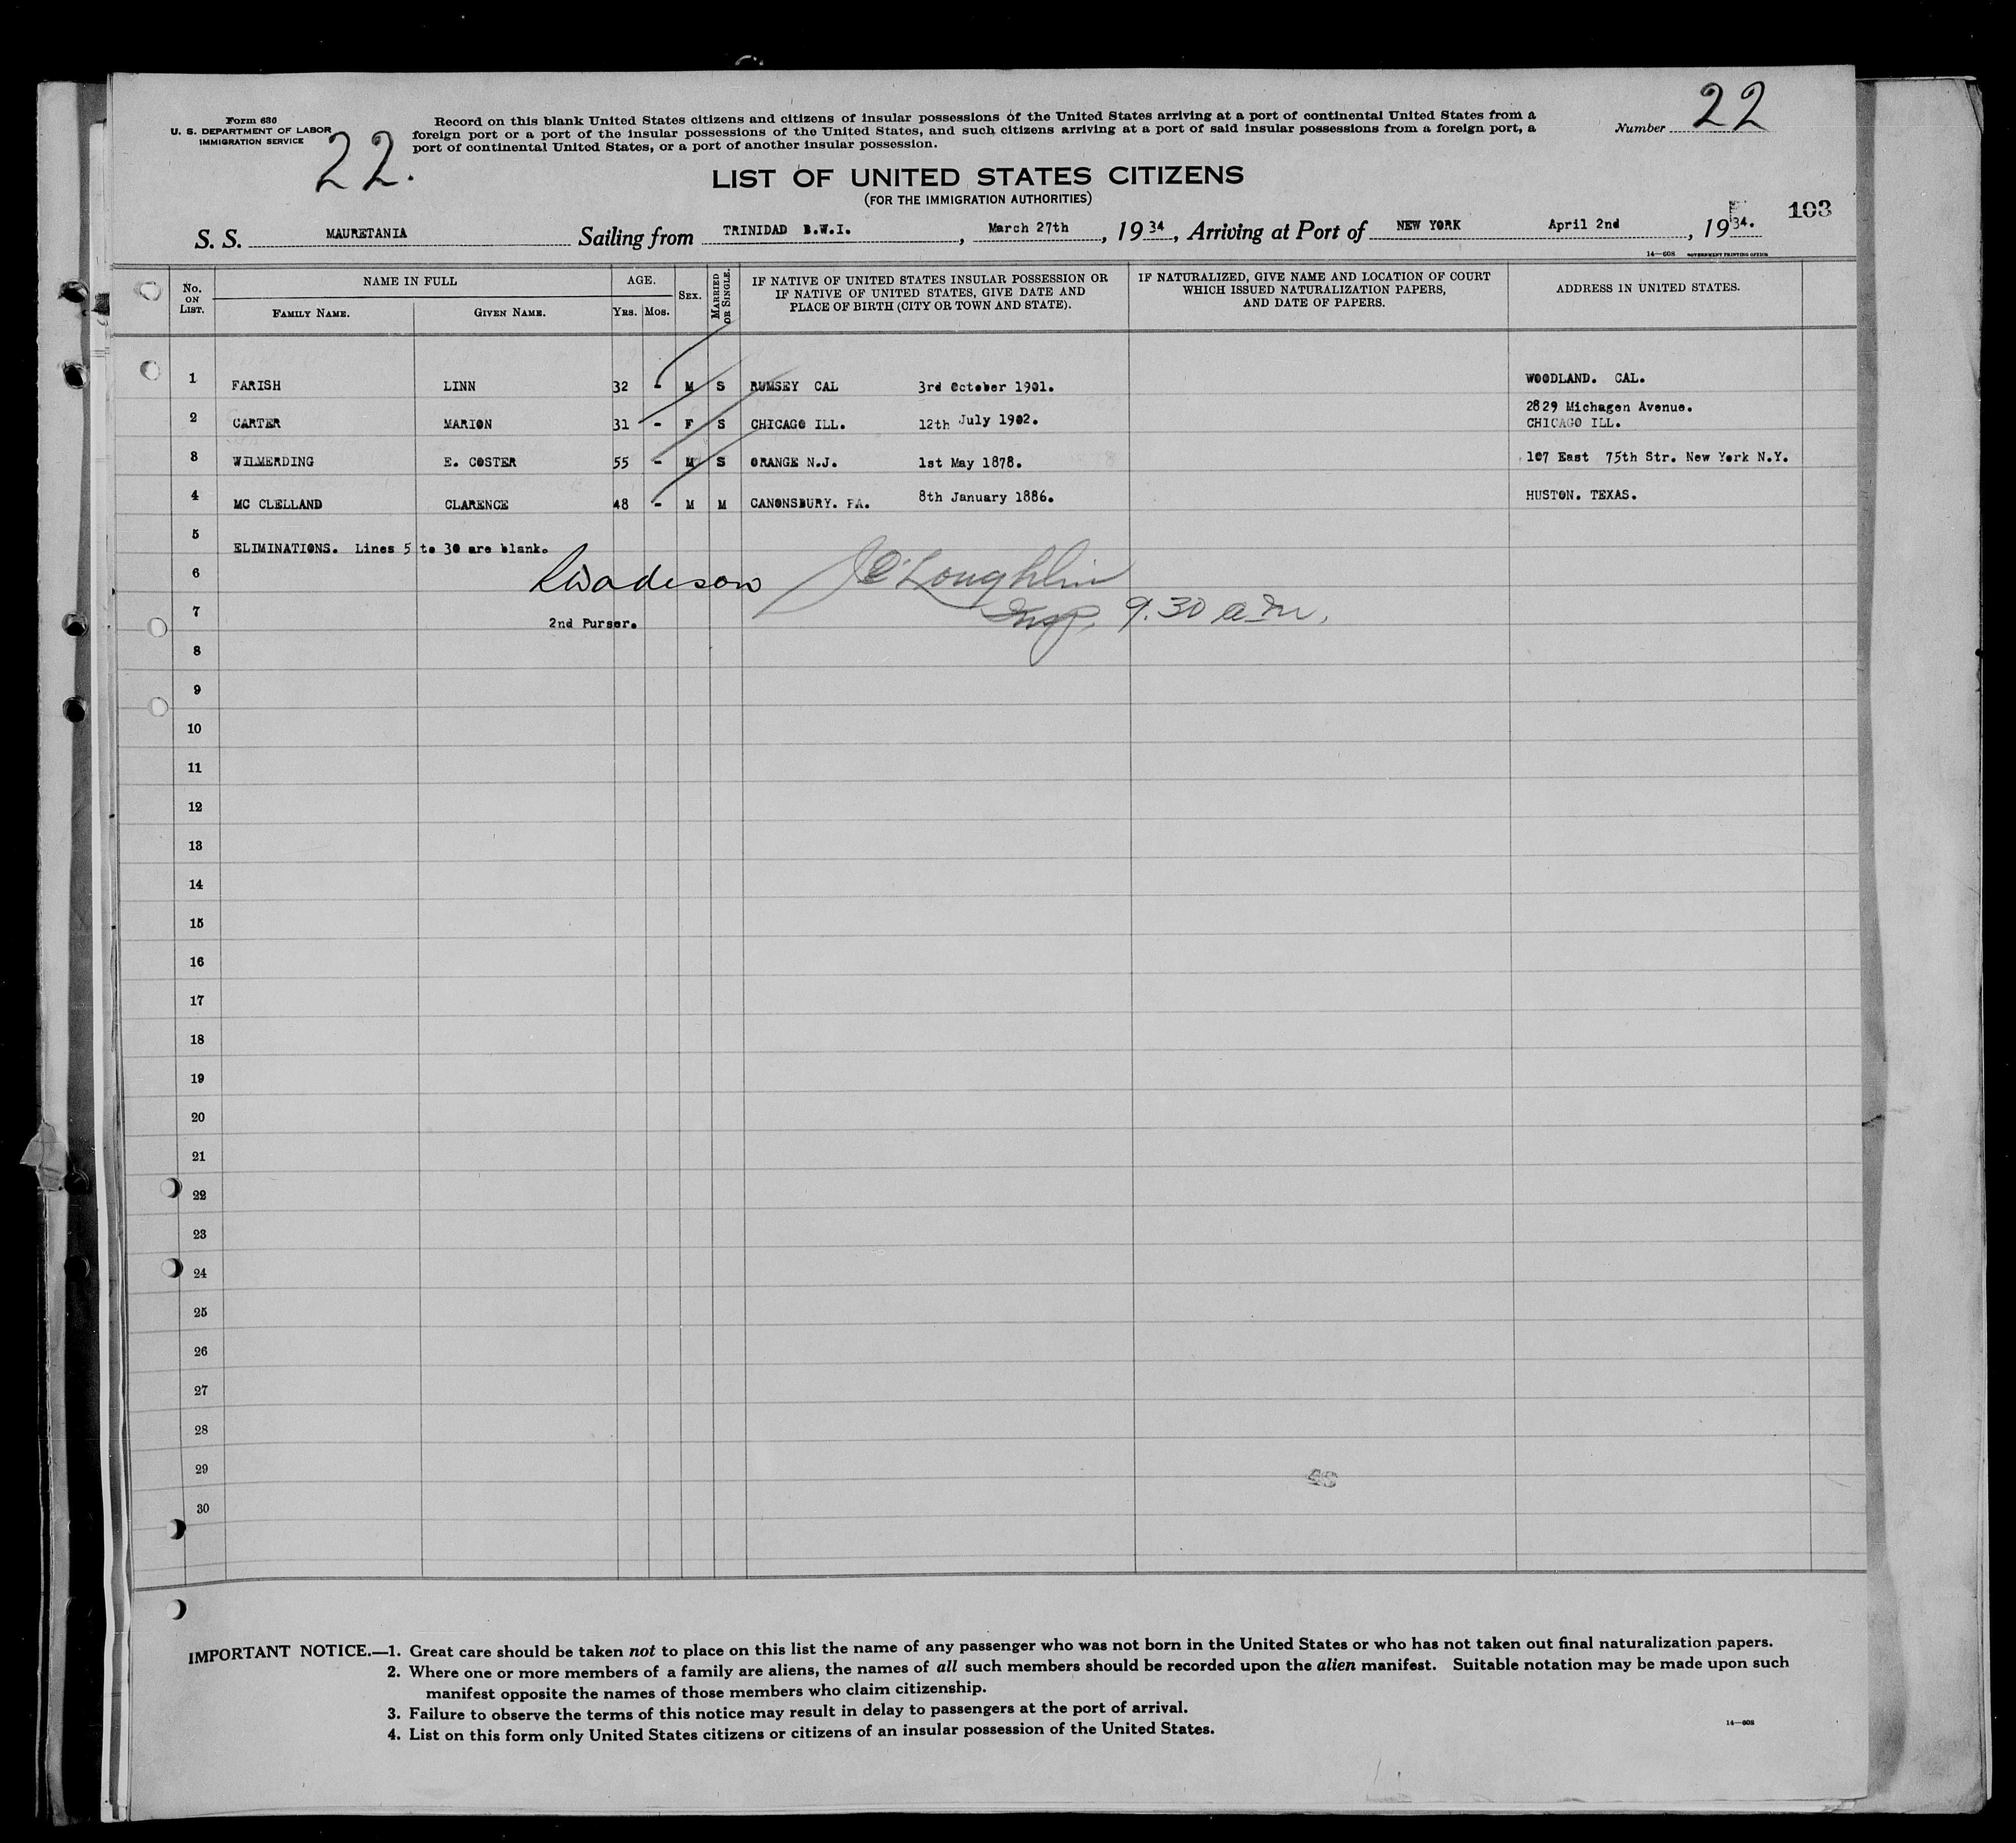 Form 630
U. S. DEPARTMENT OF LABOR
IMMIGRATION SERVICE
22.
Record on this blank United States citizens and citizens of insular possessions of the United States arriving at a port of continental United States from a
foreign port or a port of the insular possessions of the United States, and such citizens arriving at a port of said insular possessions from a foreign port, a
port of continental United States, or a port of another insular possession.
Number 22
LIST OF UNITED STATES CITIZENS
(FOR THE IMMIGRATION AUTHORITIES)
103
S. S. MAURETANIA Sailing from TRINIDAD B.W.I., March 27th, 19 34, Arriving at Port of NEW YORK April 2nd, 19 34.
14—608 GOVERNMENT PRINTING OFFICE
No. ON LIST. NAME IN FULL AGE. SEX. MARRIED OR SINGLE. IF NATIVE OF UNITED STATES INSULAR POSSESSION OR IF NATIVE OF UNITED STATES, GIVE DATE AND PLACE OF BIRTH (CITY OR TOWN AND STATE). IF NATURALIZED, GIVE NAME AND LOCATION OF COURT WHICH ISSUED NATURALIZATION PAPERS, AND DATE OF PAPERS. ADDRESS IN UNITED STATES.
FAMILY NAME. GIVEN NAME. YRS. MOS.
1 FARISH LINN 32 - M S RUMSEY CAL 3rd October 1901. WOODLAND. CAL.
2 CARTER MARION 31 - F S CHICAGO ILL. 12th July 1902. 2829 Michagen Avenue. CHICAGO ILL.
3 WILMERDING E. COSTER 55 - M S ORANGE N.J. 1st May 1878. 107 East 75th Str. New York N.Y.
4 MC CLELLAND CLARENCE 48 - M M CANONSBURY. PA. 8th January 1886. HUSTON. TEXAS.
5 ELIMINATIONS. Lines 5 to 30 are blank.
6 O'Loughlin
7 2nd Purser. Insp. 9.30 a.m.
8
9
10
11
12
13
14
15
16
17
18
19
20
21
22
23
24
25
26
27
28
29
30
IMPORTANT NOTICE.—1. Great care should be taken not to place on this list the name of any passenger who was not born in the United States or who has not taken out final naturalization papers.
2. Where one or more members of a family are aliens, the names of all such members should be recorded upon the alien manifest. Suitable notation may be made upon such
manifest opposite the names of those members who claim citizenship.
3. Failure to observe the terms of this notice may result in delay to passengers at the port of arrival.
4. List on this form only United States citizens or citizens of an insular possession of the United States.
14—608